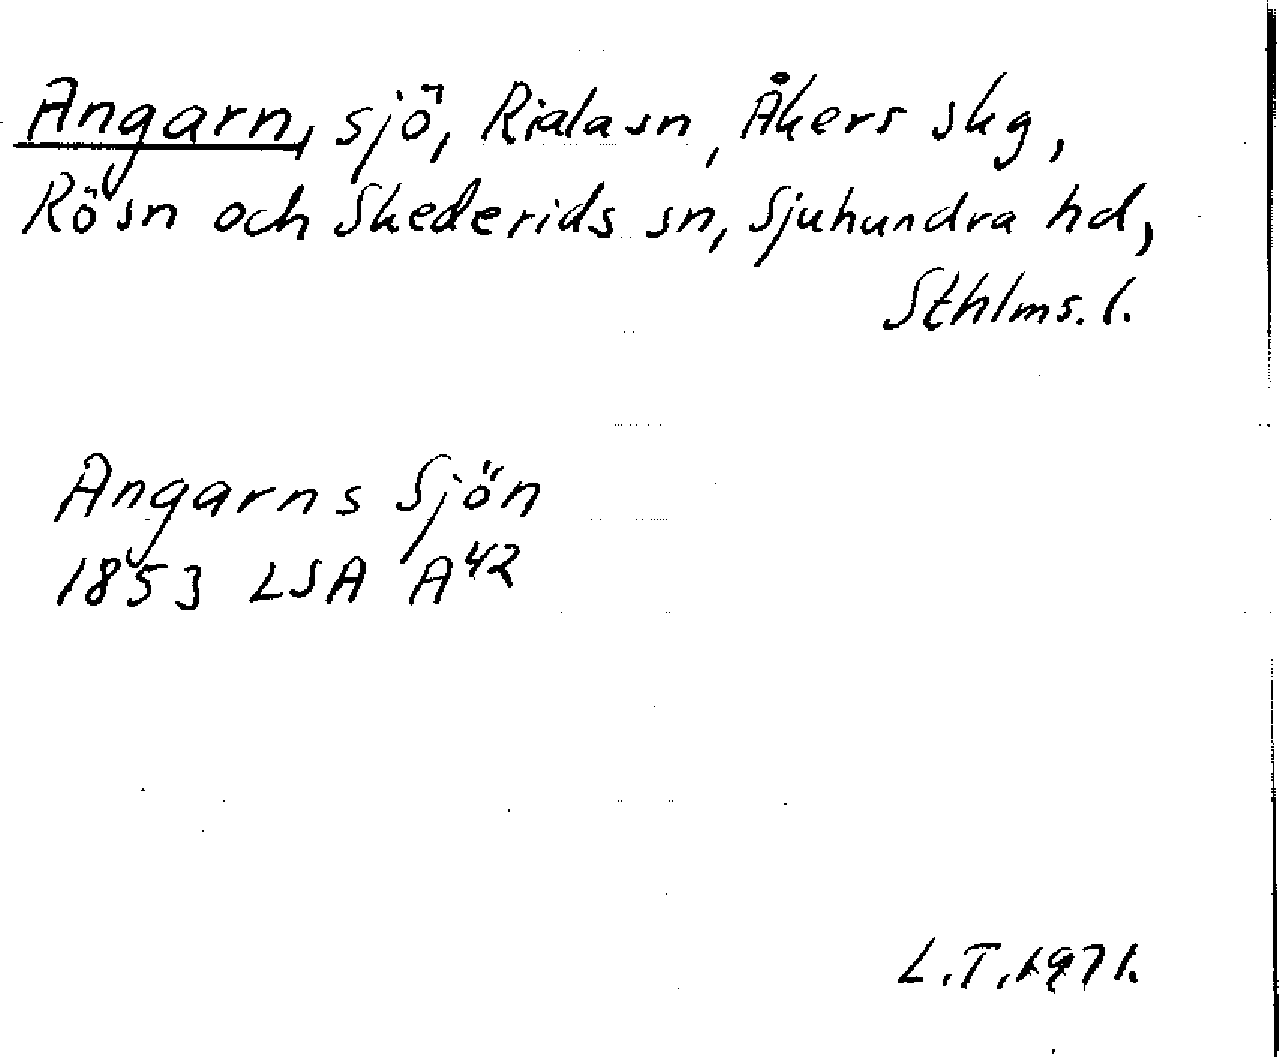 Angarn, sjö, Riala sn, Åkers skg,
Rö sn och Skederids sn, Sjuhundra hd,
Sthlms. l.
Angarns Sjön
1853 LSA A42
L.T. 1971.